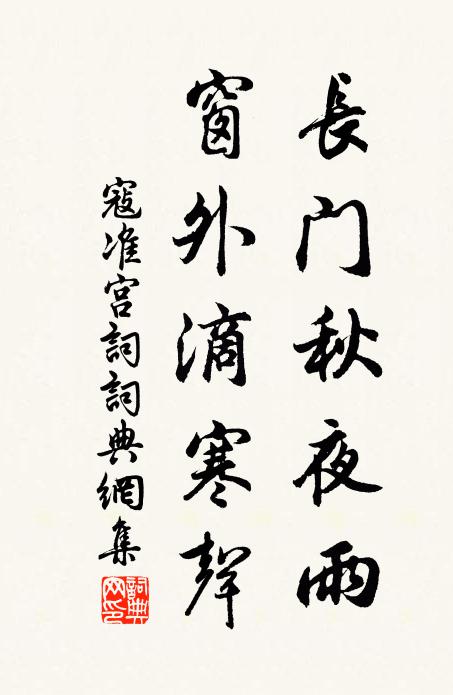 長门秋夜雨
窗外滴寒聲
寇准宫詞詞典網集
詞典网印